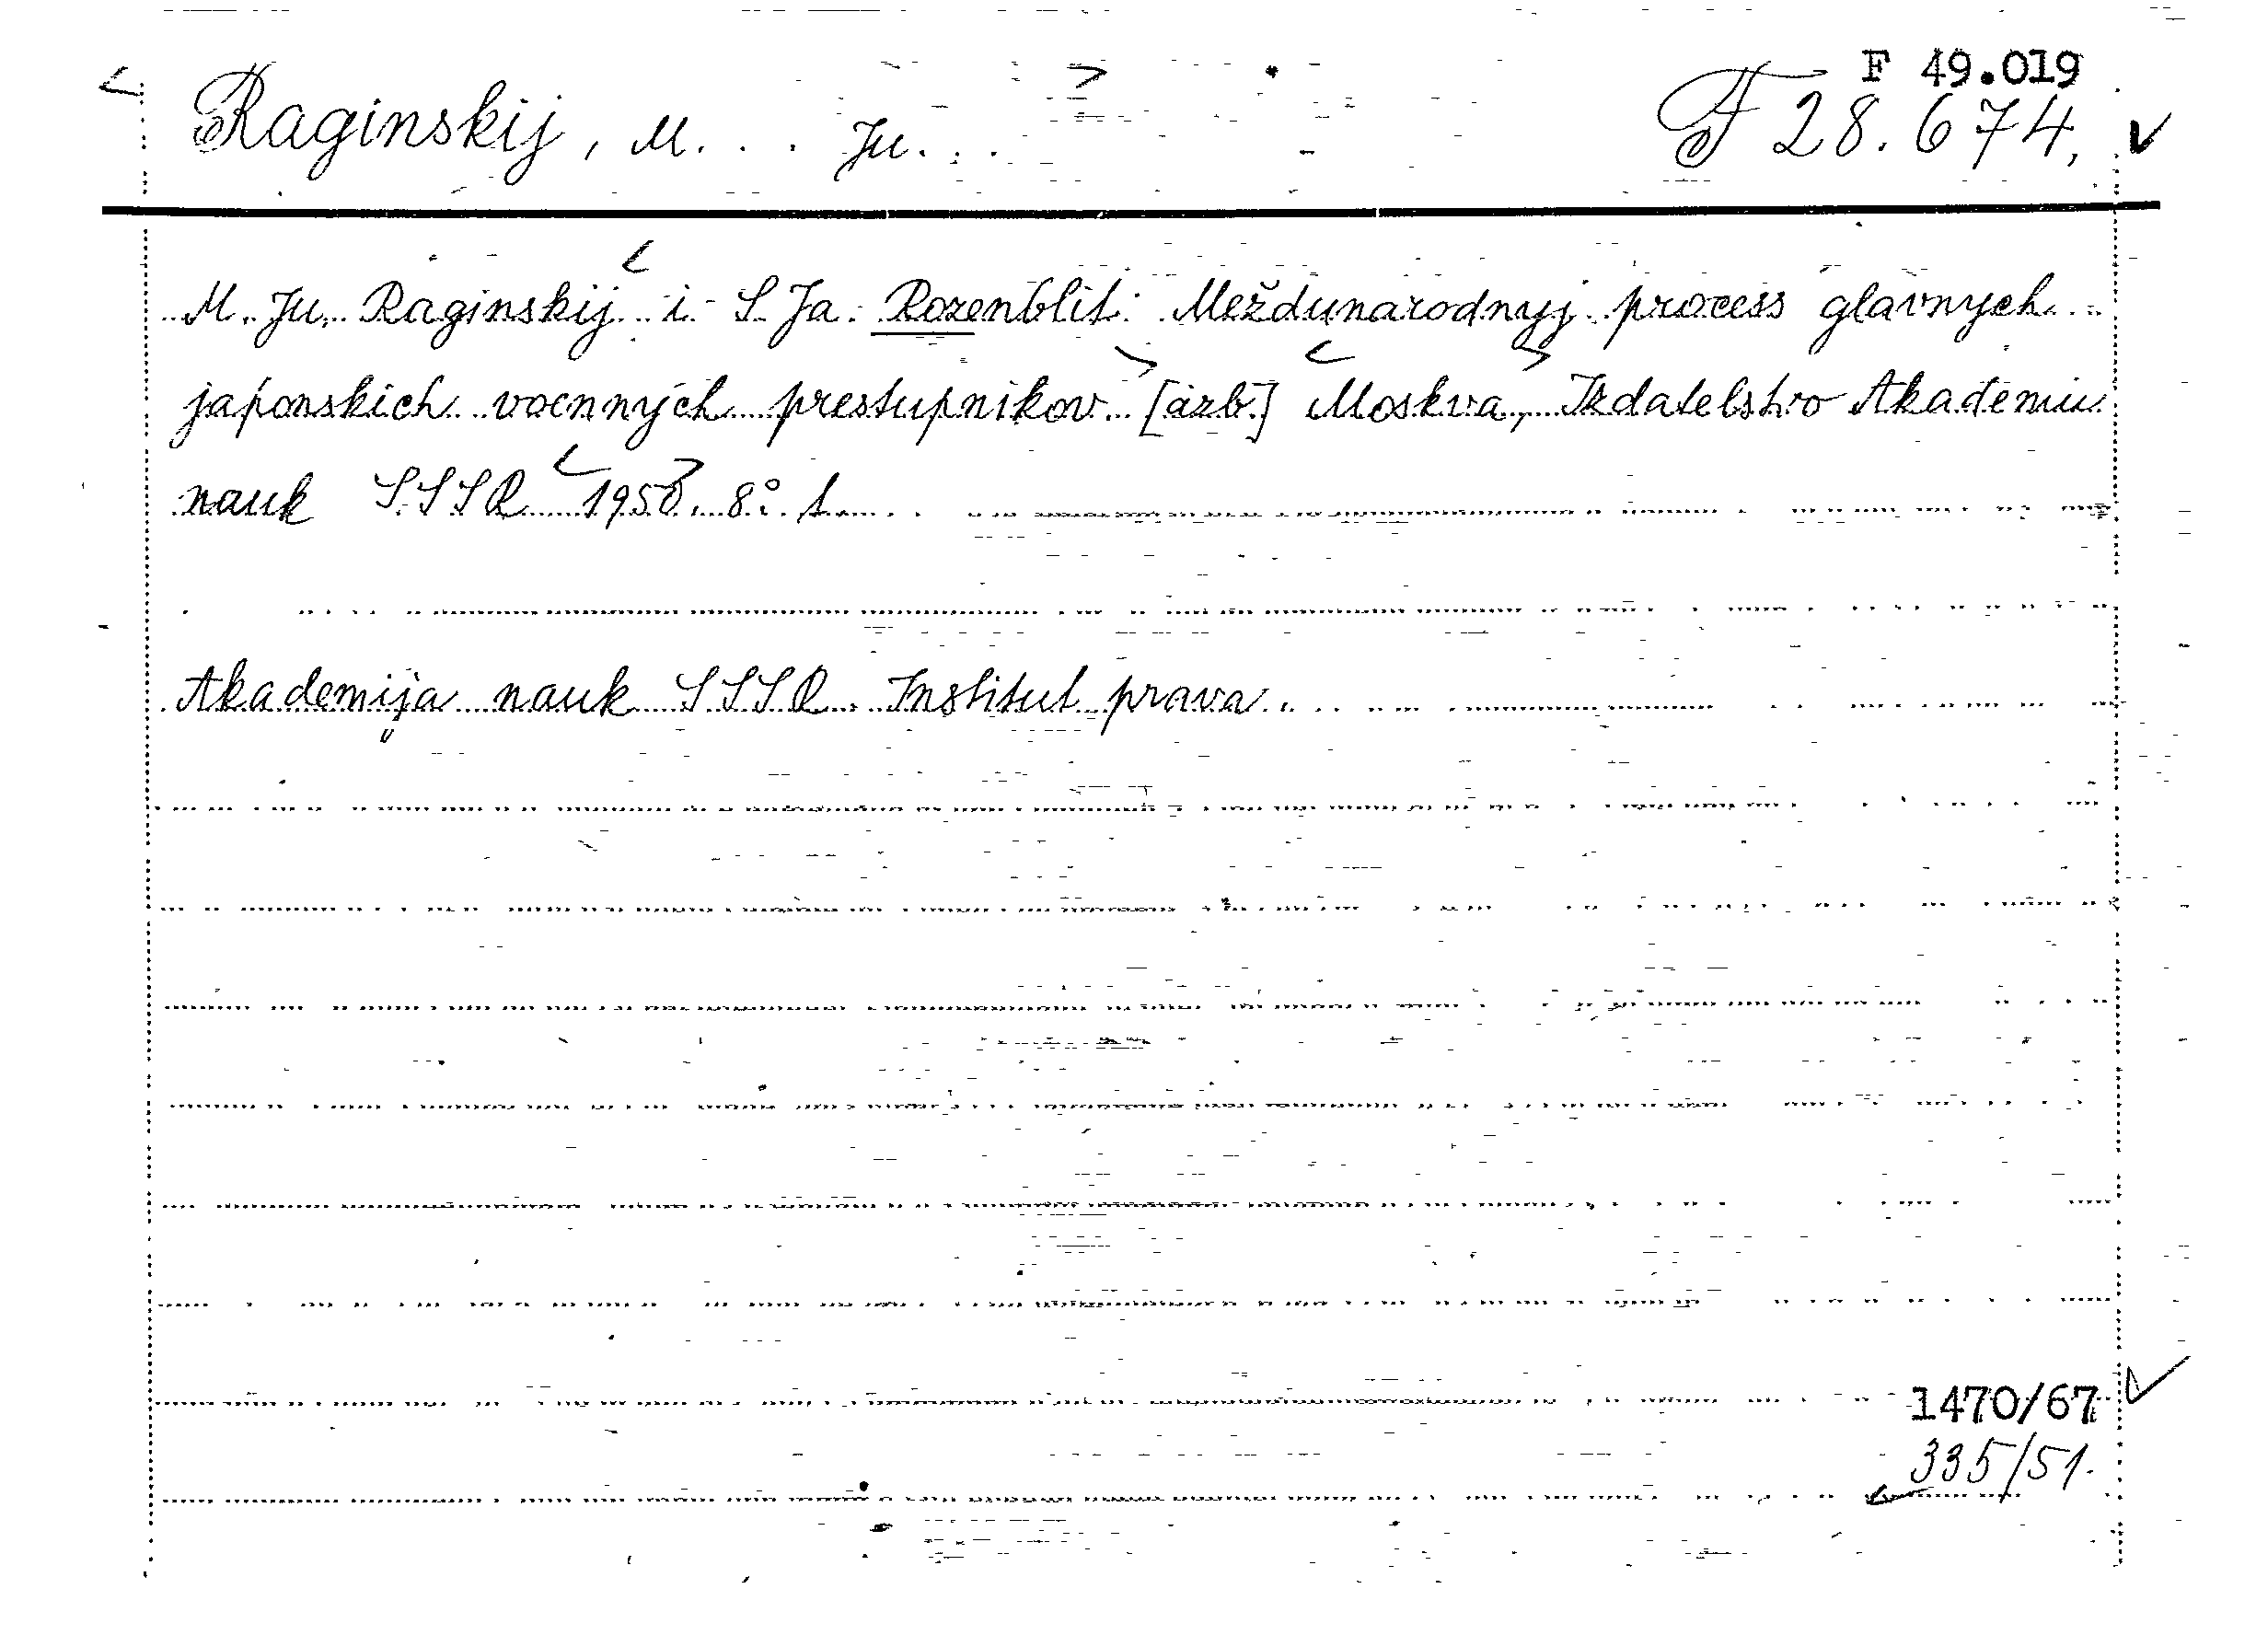 F 49.019
Raginskij, M... Ju... F 28.674,
M. Ju. Raginskij i S Ja. Rozenblit: Meždunarodnyj process glavnych
japonskich voennych prestupnikov. [azb.] Moskva, Izdatelstvo Akademii
nauk SSSR 1950. 8° 1.
Akademija nauk SSSR. Institut prava.
1470/67
335/51.